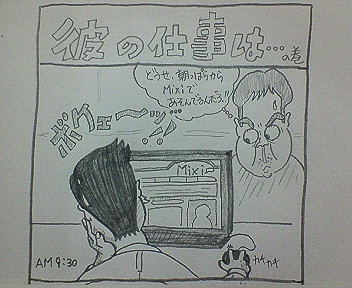 彼の仕事は…の巻
どうせ、朝っぱらから
Mixiで
あそんでるんだろ!!
ボケェーッ
Mixi
AM 9:30
カチカチ